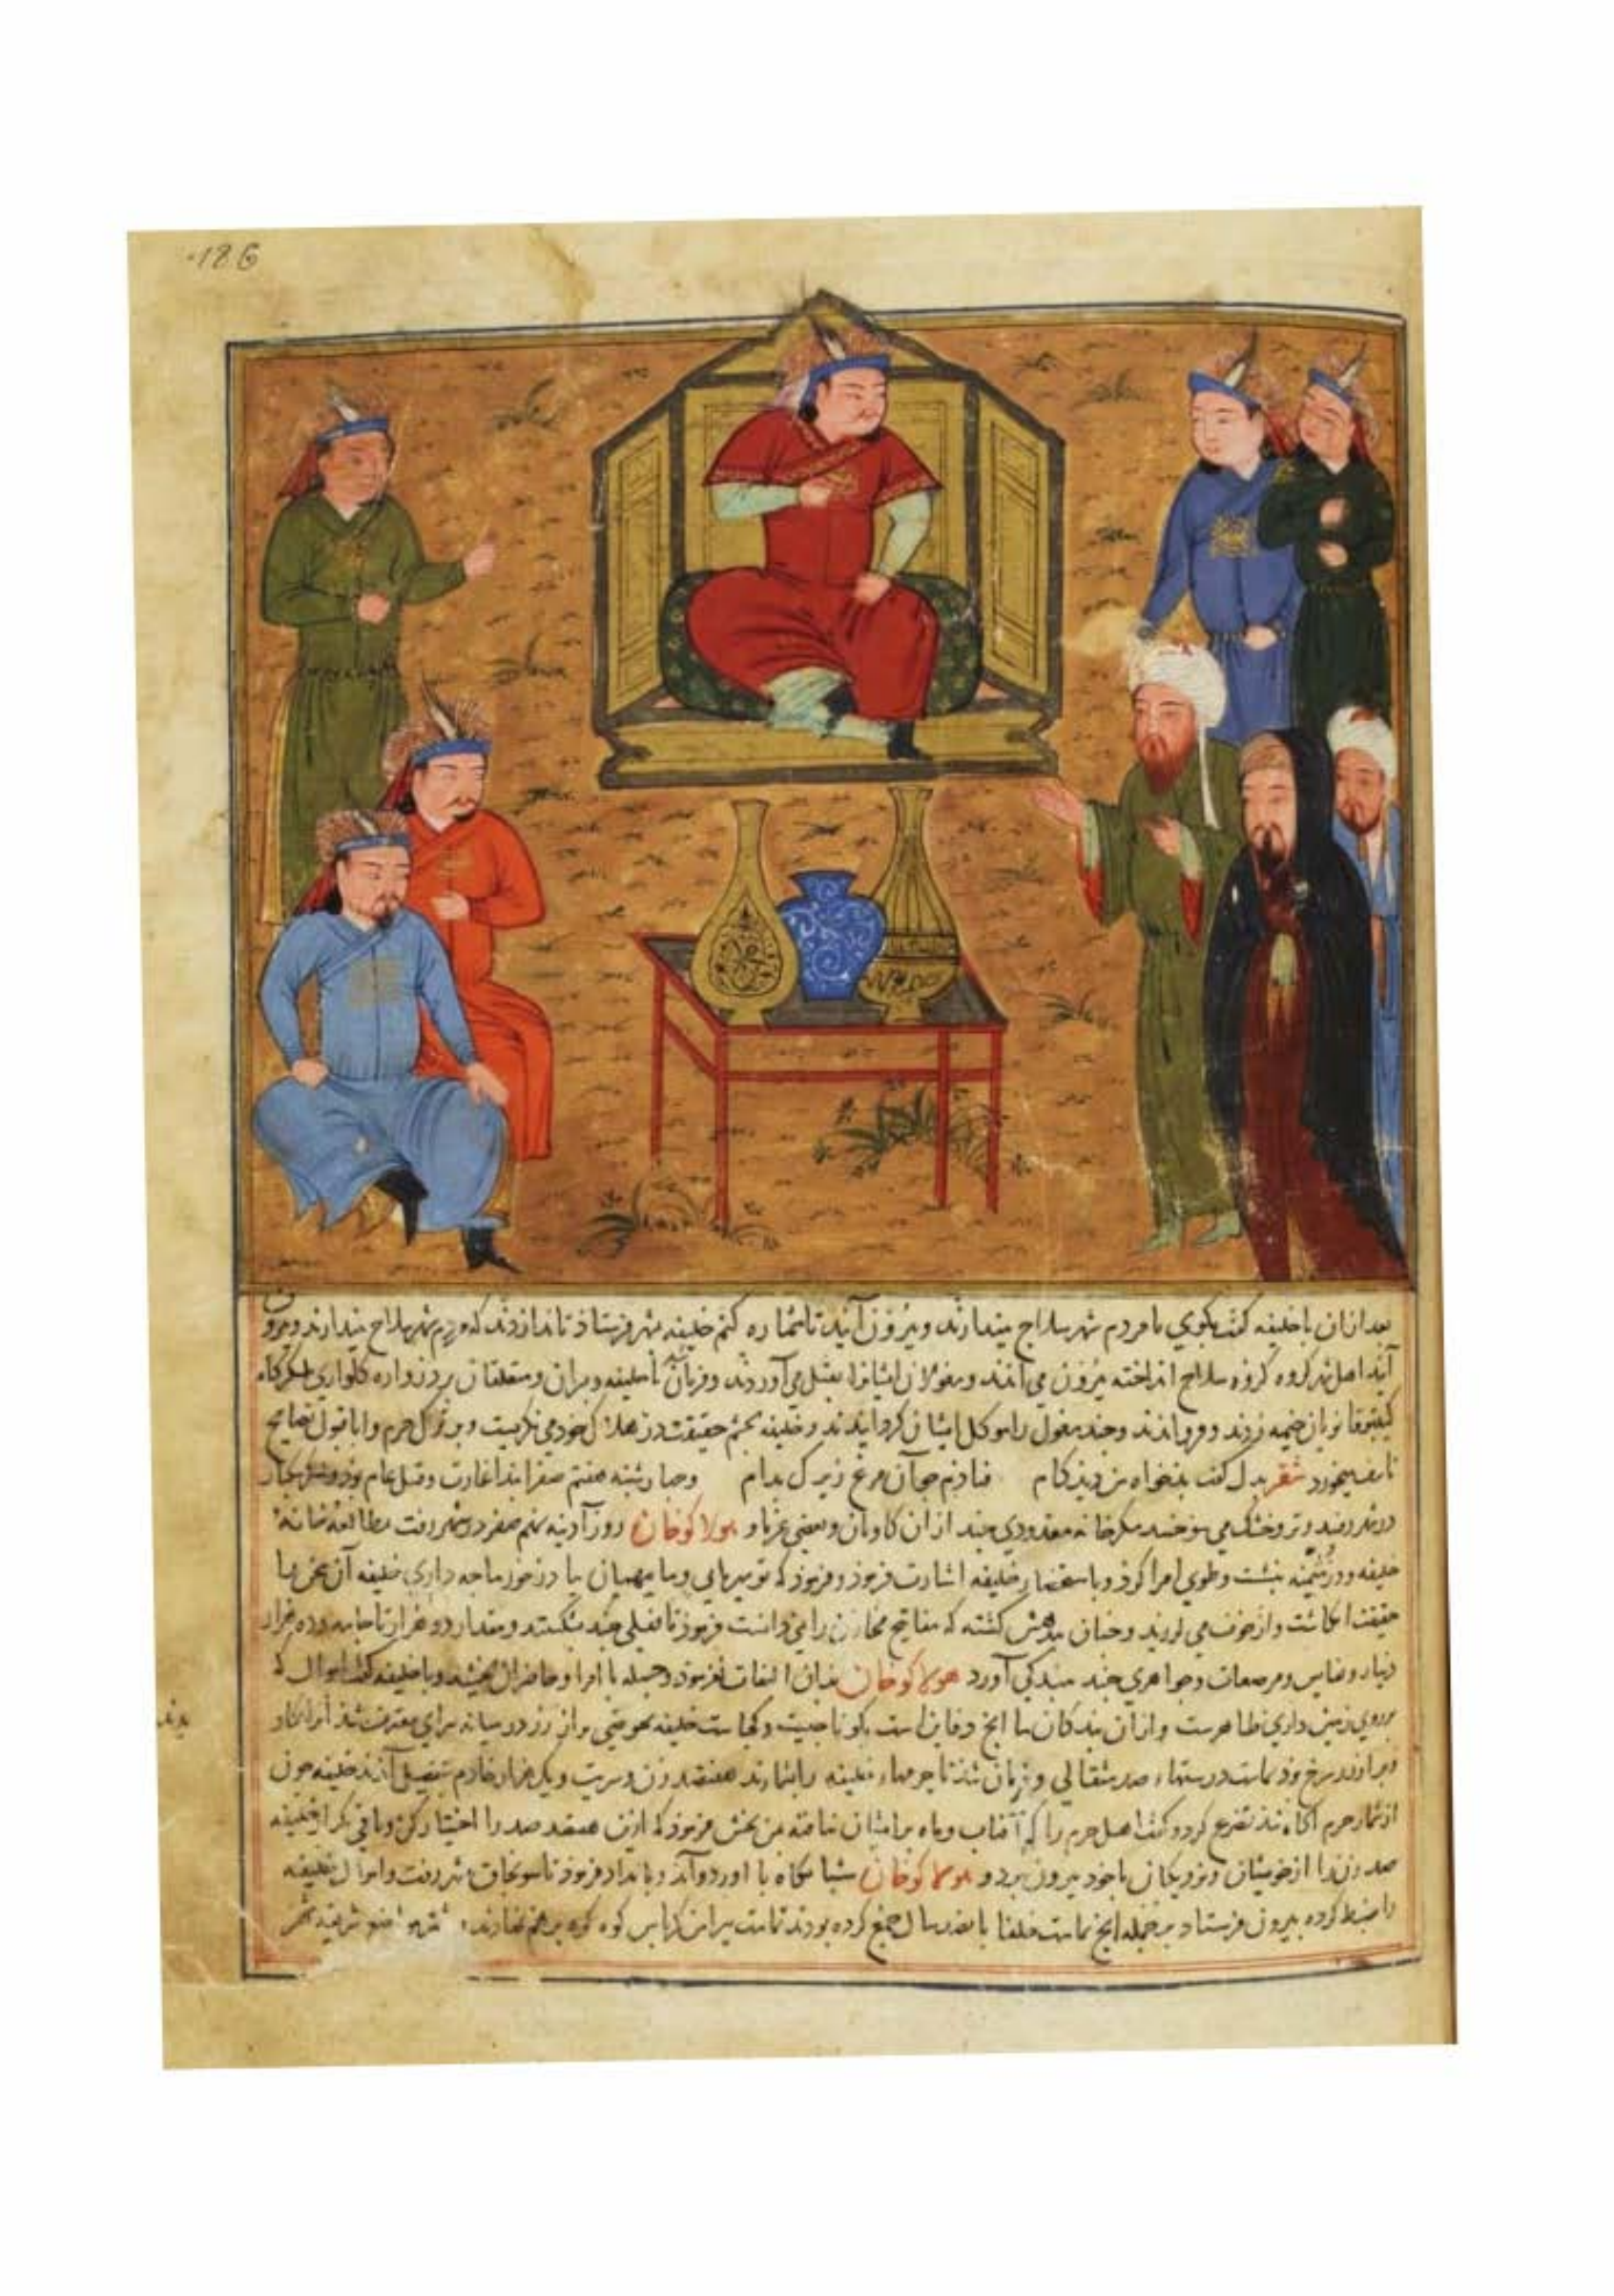 186
بعد ازان با خلیفه گفت بگوی تا مردم شهر سلاح بیندازند و بیرون آیند تا شماره کنیم خلیفه بشهر فرستاذ تا ندا زدند که مردم شهر سلاح بیندازند و بیرون
آیند اهل شهر گروه گروه سلاح انداخته بیرون می آمدند و مغولان ایشانرا بقتل می آوردند و فرمان شد تا خلیفه و پسران و متعلقان بر دروازه کلواذی بلشکرگاه
کیتبوقا نویان خیمه زدند و فرو آمدند و چند مغول را موکل ایشان گردانیدند و خلیفه بچشم حقیقت در هلاک خود می نگریست و بر ترک حزم و ابا قبول نصایح
تاسف میخورد شعر بدل گفت بدخواه من دید کام فتادم چو آن مرغ زیرک بدام و چهارشنبه هفتم صفر ابتدا غارت و قتل عام بود و لشکر بیکبار
در شهر رفتند و تر و خشک می سوختند مگر خانه معدودی چند از ان کاوتان و بعضی غربا و هولاکوخان روز آدینه نهم صفر در شهر رفت بمطالعه خانه
خلیفه و در مثمنه بنشست و طوی امرا کرد و باستحضار خلیفه اشارت فرمود و فرمود که تو میزبانی و ما میهمان بیا تا در خور ما چه داری خلیفه آن سخن را
حقیقت انگاشت و از خوف می لرزید و چنان مدهش گشته که مفاتیح مخازن را نمی دانست فرمود تا قفلی چند بشکستند و مقدار دو هزار تا جامه و ده هزار
دینار و نفایس و مرصعات و جواهری چند ببندگی آورد هولاکوخان بدان التفات نفرمود و جمله با امرا و حاضران بخشید و با خلیفه گفت اموال که
بر روی زمین داری ظاهرست و از ان بندگان ما آنچ دفاین است بگو تا چیست و کجاست خلیفه بحوضی پر از زر در میانه سرای معترف شد آنرا بکاویدند
پر از زر سرخ بود تمامت درستهاء صد مثقالی و فرمان شد تا حرمهاء خلیفه را بشمارند هفتصد زن و سریت و یک هزار خادم بتفصیل آمدند خلیفه چون
از شمار حرم آگاه شد تضرع کرد و گفت اهل حرم را که آفتاب و ماه بر ایشان نتافته بمن بخش فرمود که ازین هفتصد صد را اختیار کن و باقی بگذار خلیفه
صد زن را از خویشان و نزدیکان با خود بیرون برد و هولاکوخان شبانگاه با اوردو آمد و بامداد فرمود تا سونجاق بشهر رفت و اموال خلیفه
را ضبط کرده بیرون فرستاد بر جمله آنچ تمامت خلفا بپانصد سال جمع کرده بودند تمامت پیرامن کریاس کوه کوه بر هم نهادند